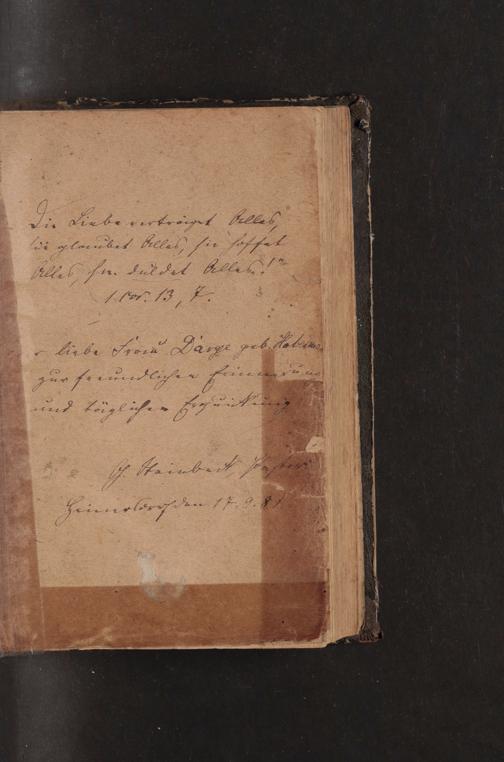 Die Liebe verträget Alles,
sie glaubet Alles, sie hoffet
Alles, sie duldet Alles!"
1 Cor. 13, 7.
liebe Frau Darge geb.
zur freundlichen Erinnerung
und täglichen Erquickung
Steinbeck, Pastor
den 17. 9. 81